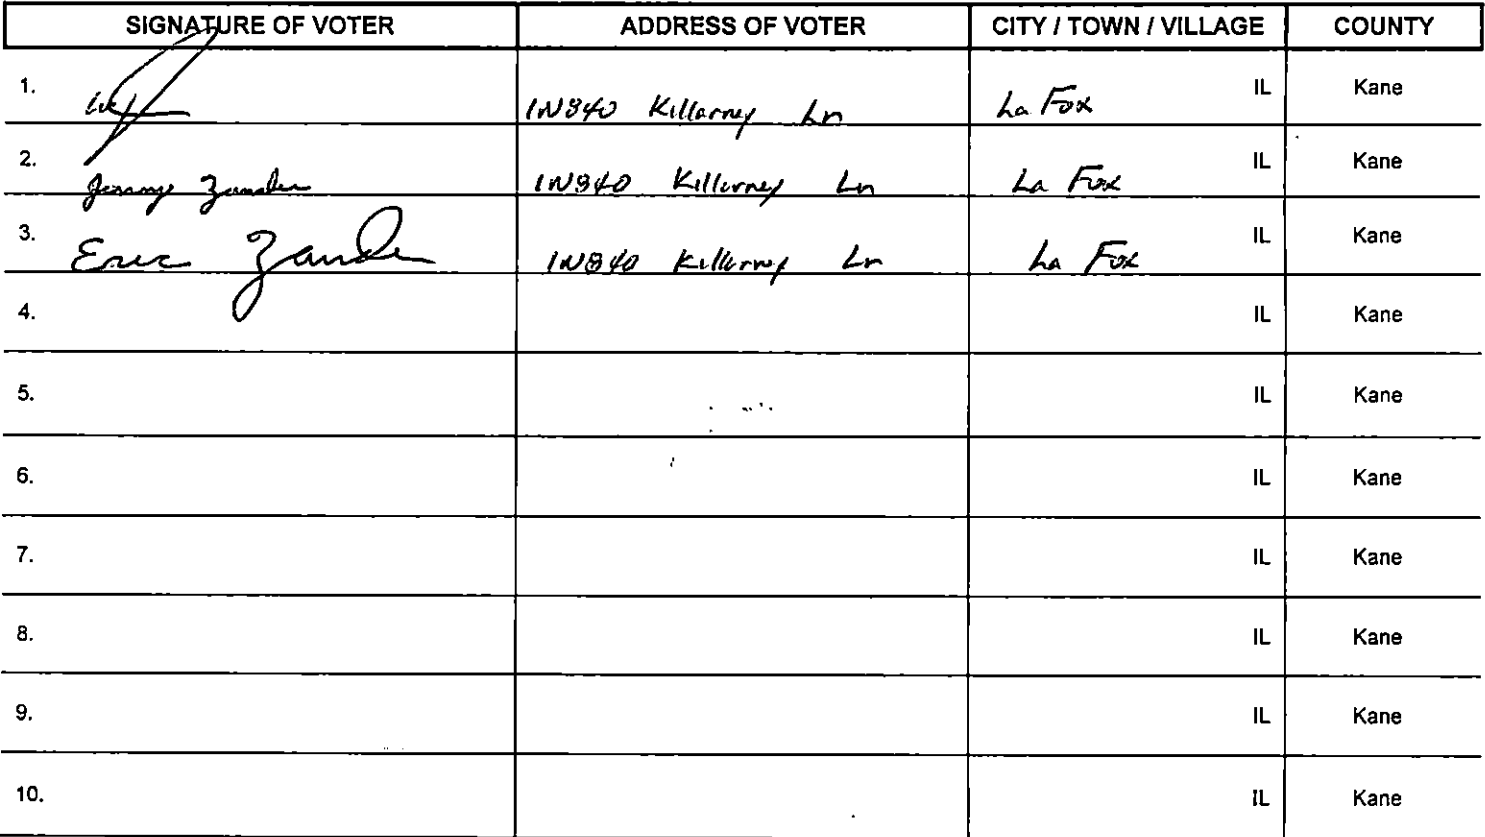 SIGNATURE OF VOTER ADDRESS OF VOTER CITY / TOWN / VILLAGE COUNTY
1. 1N840 Killarney Ln La Fox IL Kane
2. Zander 1N840 Killarney Ln La Fox IL Kane
3. Eric Zander 1N840 Killarney Ln La Fox IL Kane
4. IL Kane
5. IL Kane
6. IL Kane
7. IL Kane
8. IL Kane
9. IL Kane
10. IL Kane